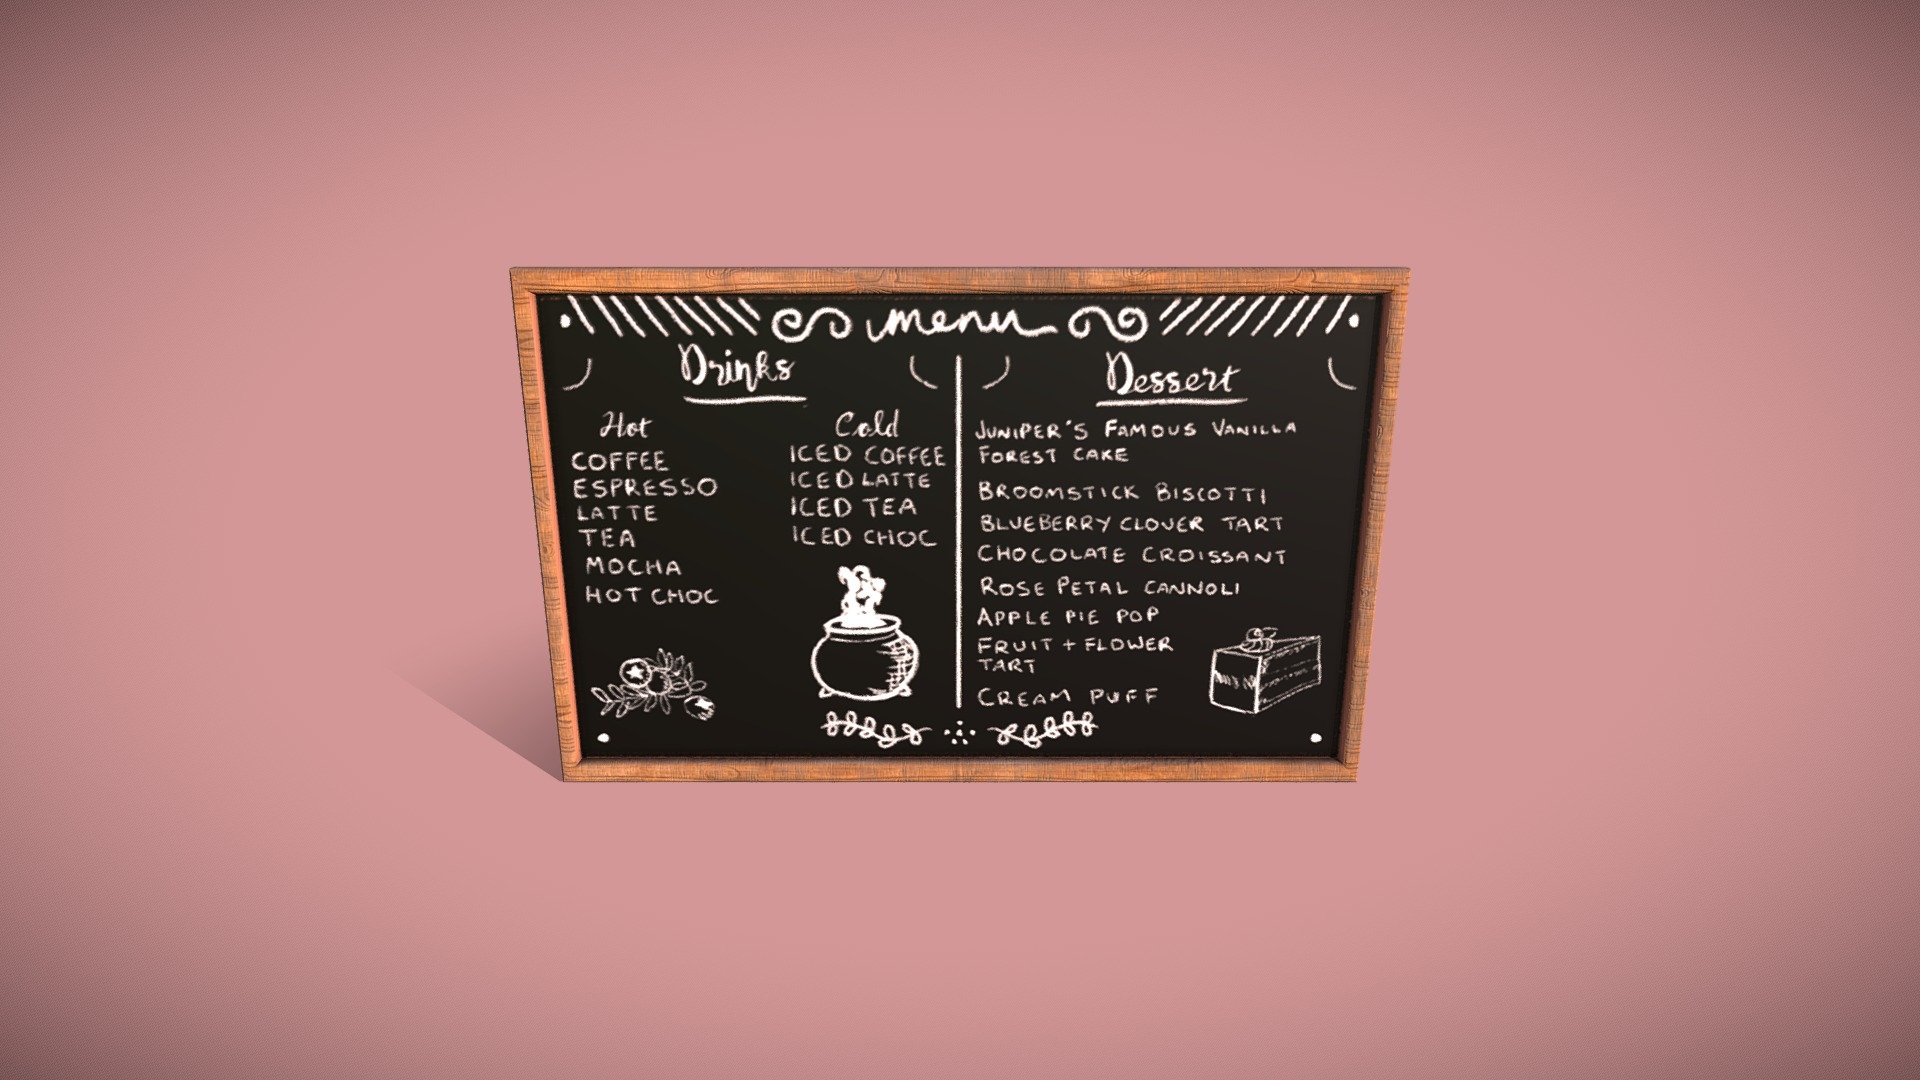 menu
Drinks
Hot
COFFEE
ESPRESSO
LATTE
TEA
MOCHA
HOT CHOC
Cold
ICED COFFEE
ICED LATTE
ICED TEA
ICED CHOC
Dessert
JUNIPER'S FAMOUS VANILLA
FOREST CAKE
BROOMSTICK BISCOTTI
BLUEBERRY CLOVER TART
CHOCOLATE CROISSANT
ROSE PETAL CANNOLI
APPLE PIE POP
FRUIT + FLOWER
TART
CREAM PUFF